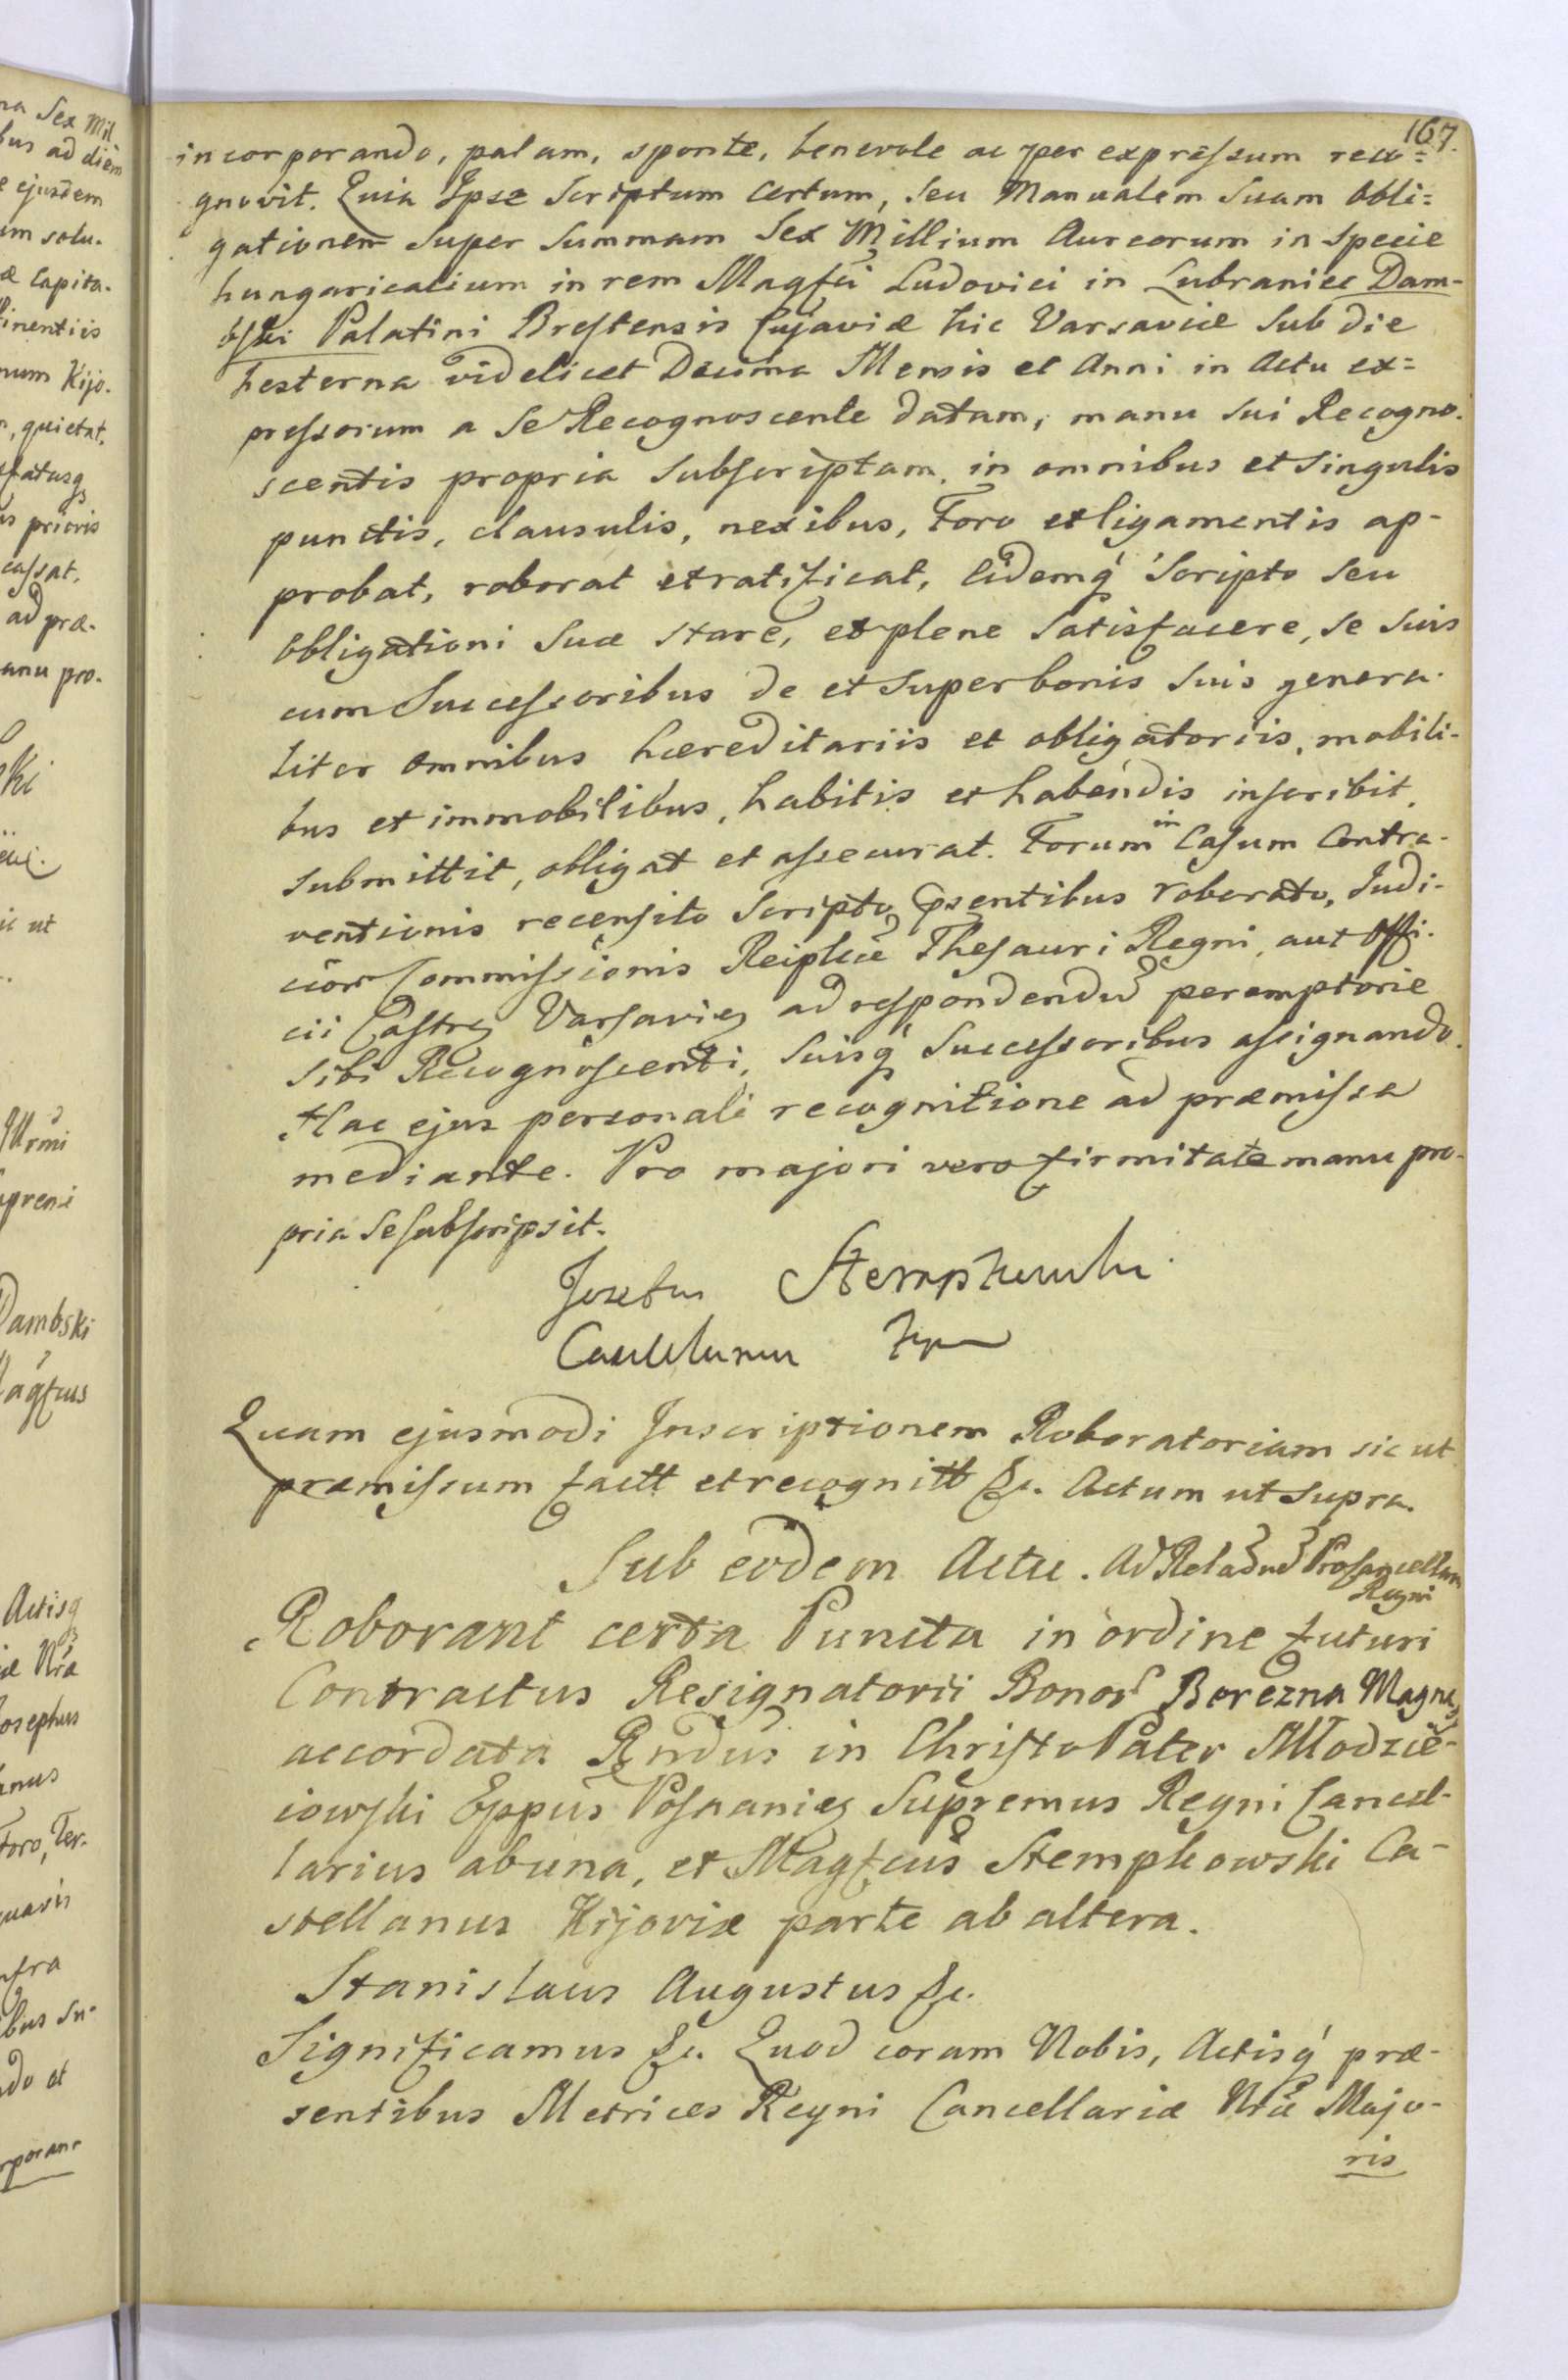 167.
incorporando, palam, sponte, benevole ac per expressum reco=
gnovit. Quia Ipse Scriptum certum, seu Manualem Suam Obli=
gationem Super Summam Sex Millium Aureorum in specie
hungaricalium in rem Magfci Ludovici in Lubraniec Dam-
bski Palatini Brestensis Cujaviæ hic Varsaviæ Sub die
hesterna videlicet Decima Mensis et Anni in Actu ex=
pressorum a Se Recognoscente datam, manu sui Recogno-
scentis propria Subscriptam, in omnibus et Singulis
punctis, clausulis, nexibus, Foro et ligamentis ap-
probat, roborat et ratificat, eidemq́ Scripto seu
obligationi Suæ stare, et plene Satisfacere, se suis
cum Successoribus de et Super bonis Suis genera-
liter omnibus hæreditariis et obligatoriis, mobili-
bus et immobilibus, habitis et habendis inscribit,
submittit, obligat et assecurat. Forum in Casum Contra-
ventionis recensito Scripto, pѕentibus roborato, Judi-
cior Commissionis Reiplcæ Thesauri Regni, aut Offi-
cii Castren Varsavien ad respondendũ peremptorie
sibi Recognoscenti, suisq́ Successoribus assignando.
Hac ejus personali recognitione ad præmissa
mediante. Pro majori vero firmitate manu pro-
pria Se subscripsit.
Josephus Stempkowski
Quam ejusmodi Inscriptionem Roboratoriam sic ut
præmissum factt et recognitt &c. Actum ut Supra.
Sub eodem Actu. Ad Relãõnẽ Procancellarii
Regni
Roborant certa Puncta in ordine futuri
Contractus Resignatorii Bonor Berezna Magna
accordata Rndus in Christo Pater Młodzie-
iowski Eppus Posnanien Supremus Regni Cancel-
larius ab una, et Magfcus Stempkowski Ca-
stellanus Kijoviæ parte ab altera.
Stanislaus Augustus &c.
Significamus &c. Quod coram Nobis, Actisq́ præ-
sentibus Metrices Regni Cancellariæ Nræ Majo-
ris